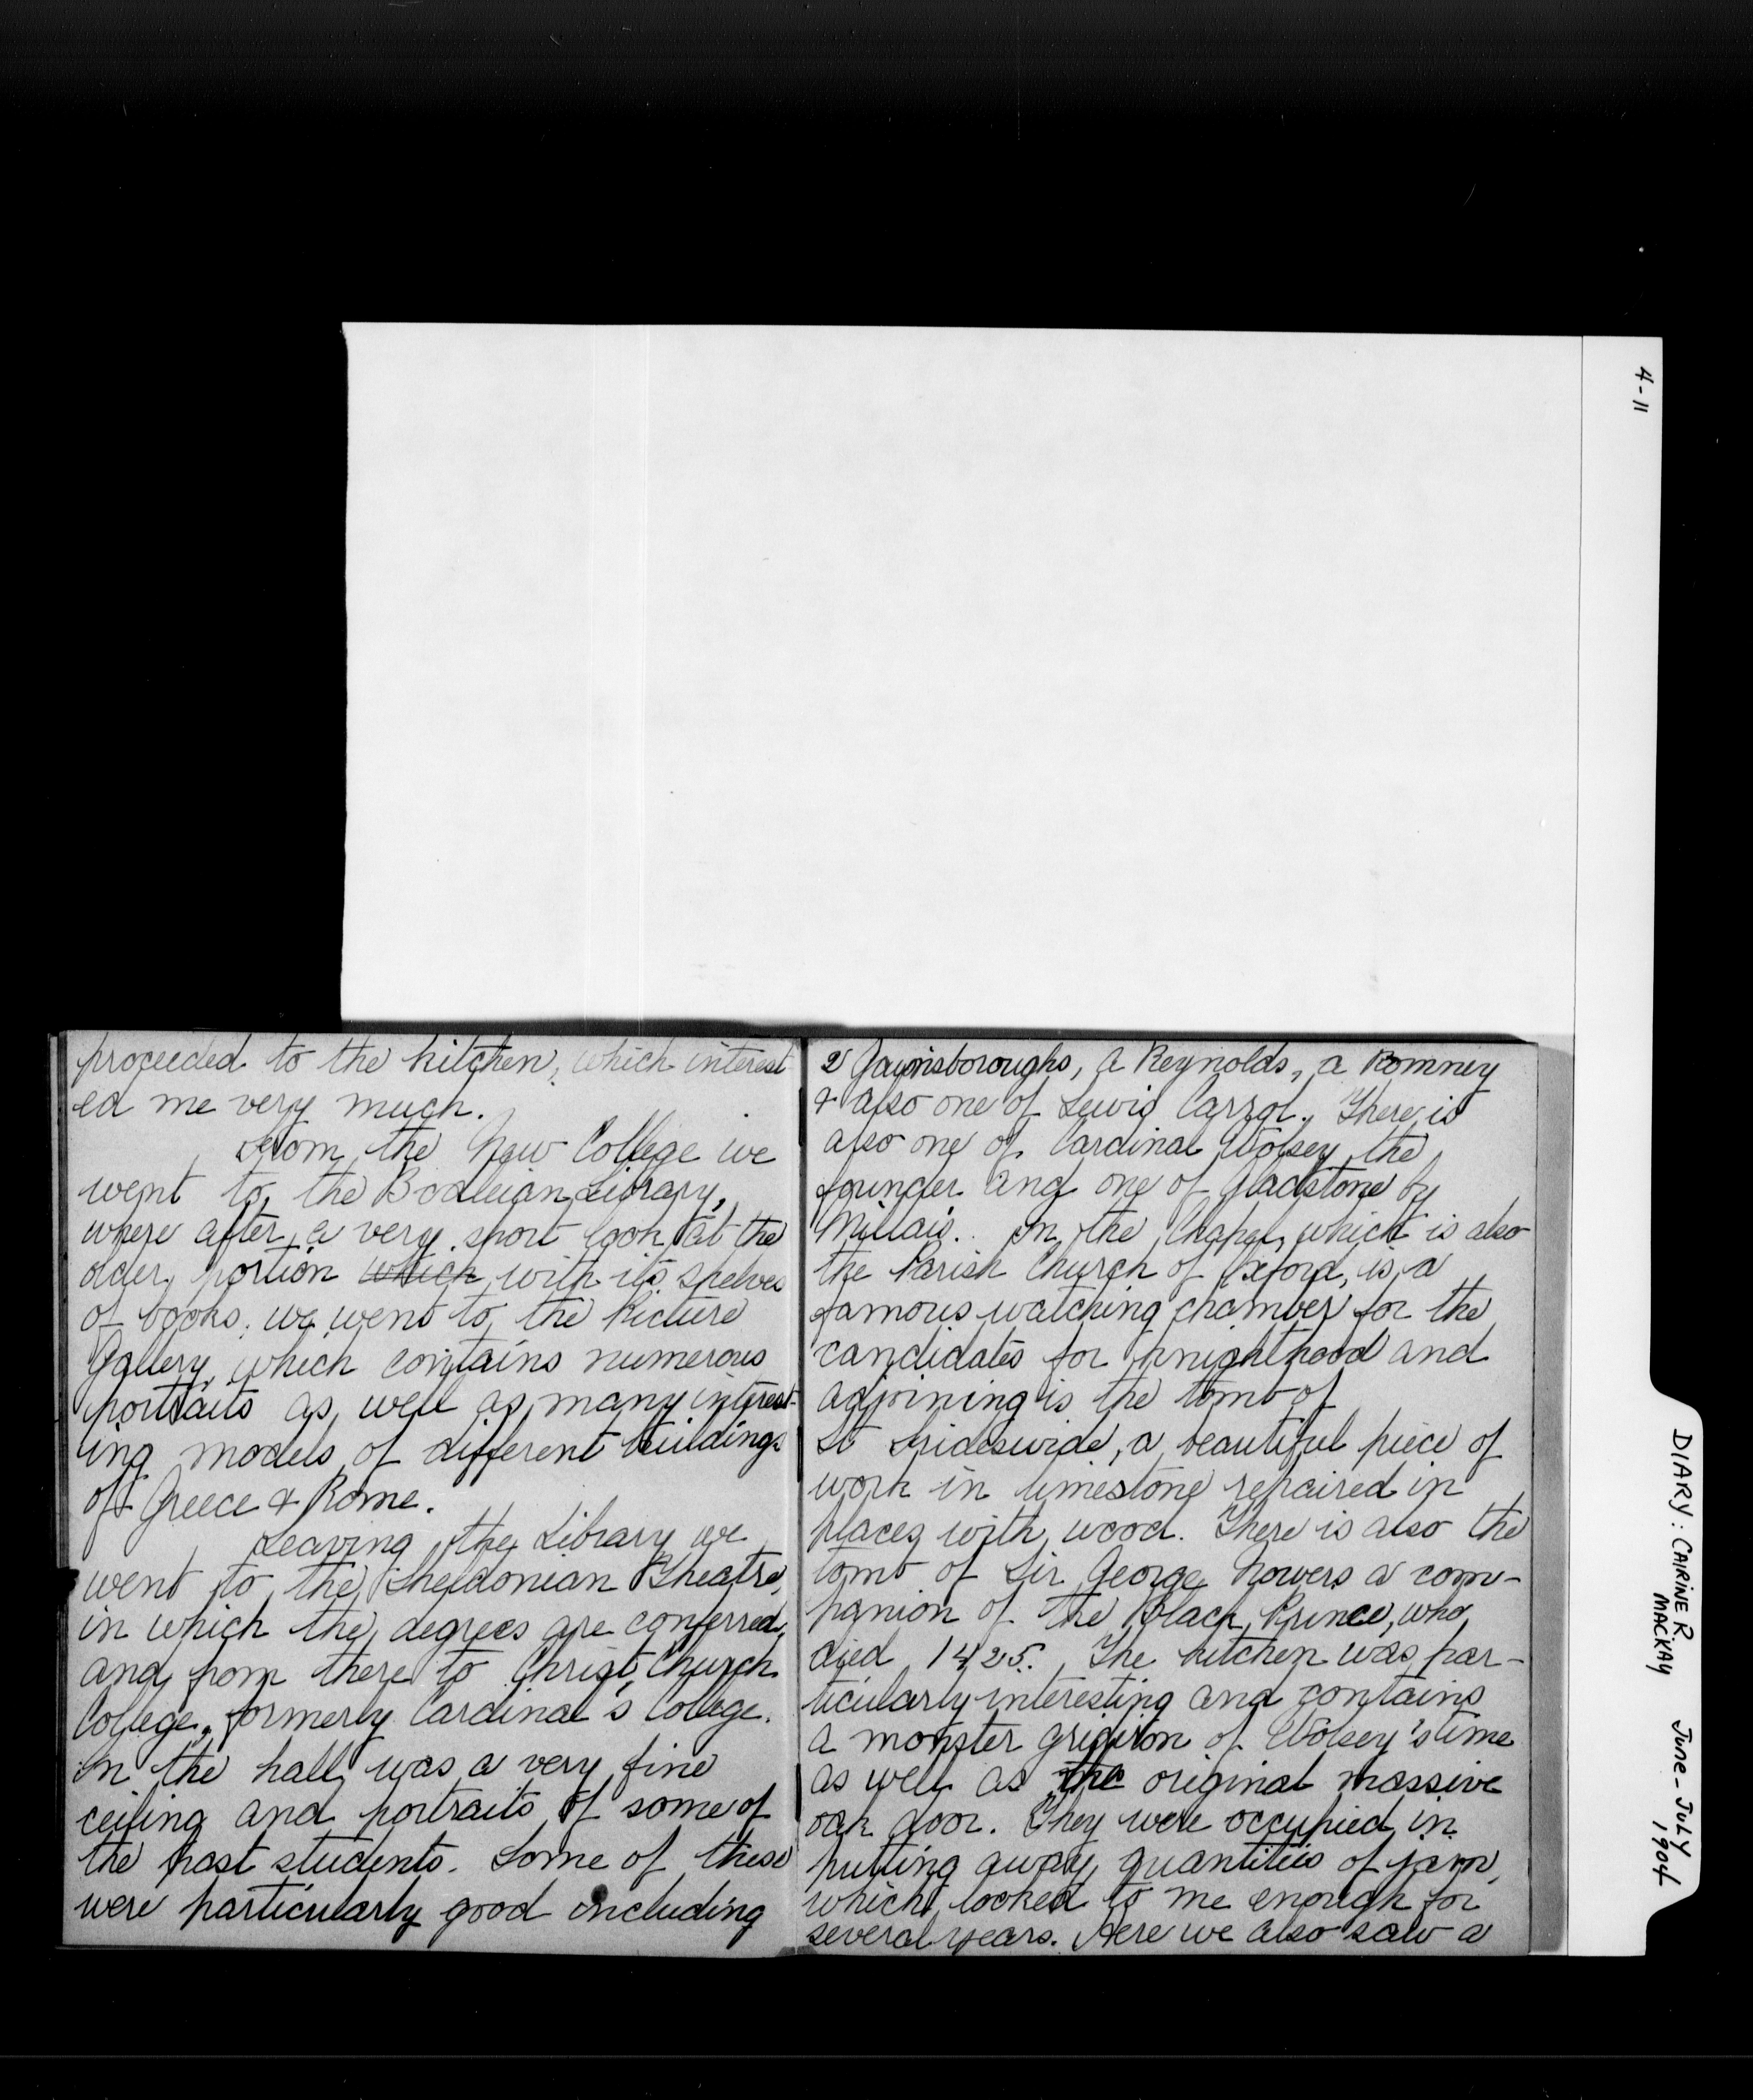 proceeded to the kitchen, which interest
ed me very much.
From the New College we
went to the Bodleian Library,
where after a very short look at the
older portion which with its shelves
of books, we went to the Picture
Gallery, which contains numerous
portraits as well as many interest-
ing models of different buildings
of Greece & Rome.
Leaving the Library we
went to the Sheldonian Theatre,
in which the degrees are conferred,
and from there to Christ Church
College, formerly Cardinal's College.
In the hall was a very fine
ceiling and portraits of some of
the past students. Some of these
were particularly good including
2 Gainsboroughs, a Reynolds, a Romney
& also one of Lewis Carrol. There is
also one of Cardinal Wolsey the
founder and one of Gladstone by
Millais. In the Chapel, which is also
the Parish Church of Oxford, is a
famous watching chamber for the
candidates for knighthood and
adjoining is the tomb of
St Frideswide, a beautiful piece of
work in limestone repaired in
places with wood. There is also the
tomb of Sir George Nowers a com-
panion of the Black Prince, who
died 1425. The kitchen was par-
ticularly interesting and contains
a monster gridiron of Wolsey's time
as well as the original massive
oak door. They were occupied in
putting away quantities of jam,
which looked to me enough for
several years. Here we also saw a
4-11
DIARY: CAIRINE R
MACKAY
JUNE-JULY
1904